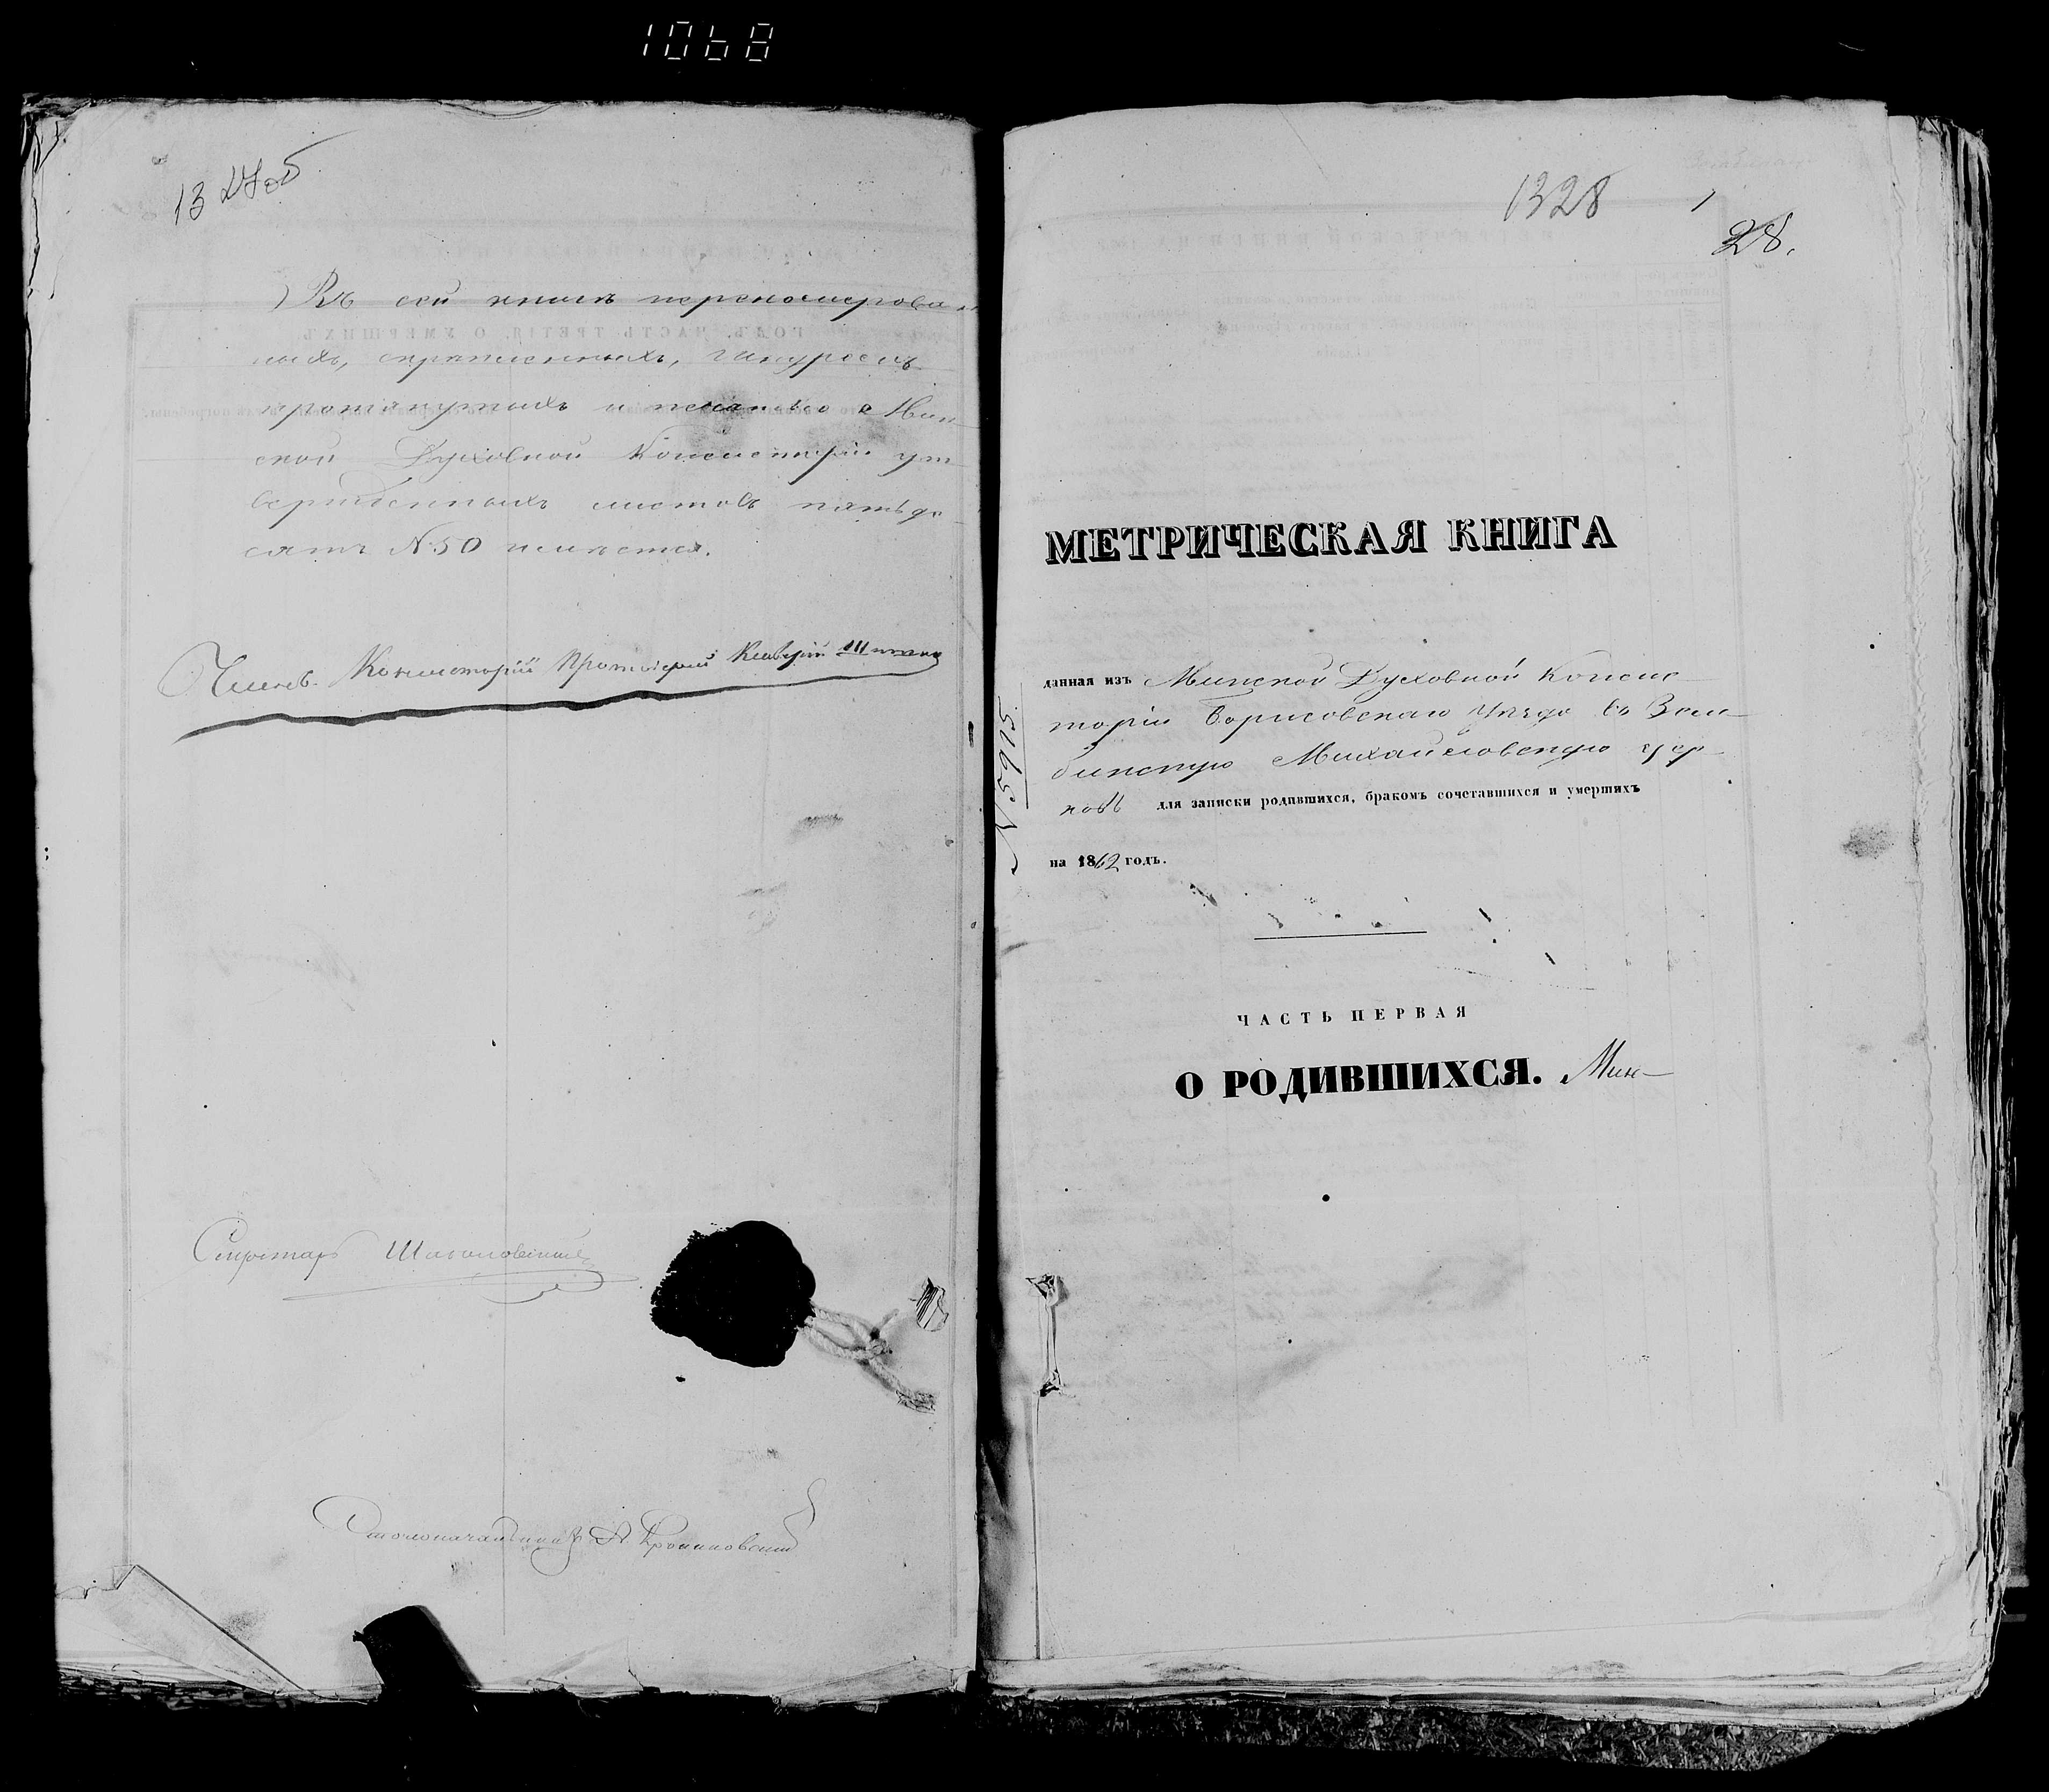 1068
13
Въ сей книгѣ перенумерован
ныхъ, скрѣпленныхъ, шнуромъ
протянутыхъ и печатью Мин
ской Духовной Консисторіи ут
вержденныхъ листовъ пятьде
сятъ N 50 имѣется.
Членъ Консисторіи Протоіерей
Секретарь
Столоначальникъ
1328
28.
МЕТРИЧЕСКАЯ КНИГА
данная изъ Минской Духовной Консис
торіи Борисовскаго Уѣзда въ Зем
бинскую Михайловскую цер
ковь для записки родившихся, бракомъ сочетавшихся и умершихъ
на 1862 годъ.
N 5915
ЧАСТЬ ПЕРВАЯ
О РОДИВШИХСЯ. Мин